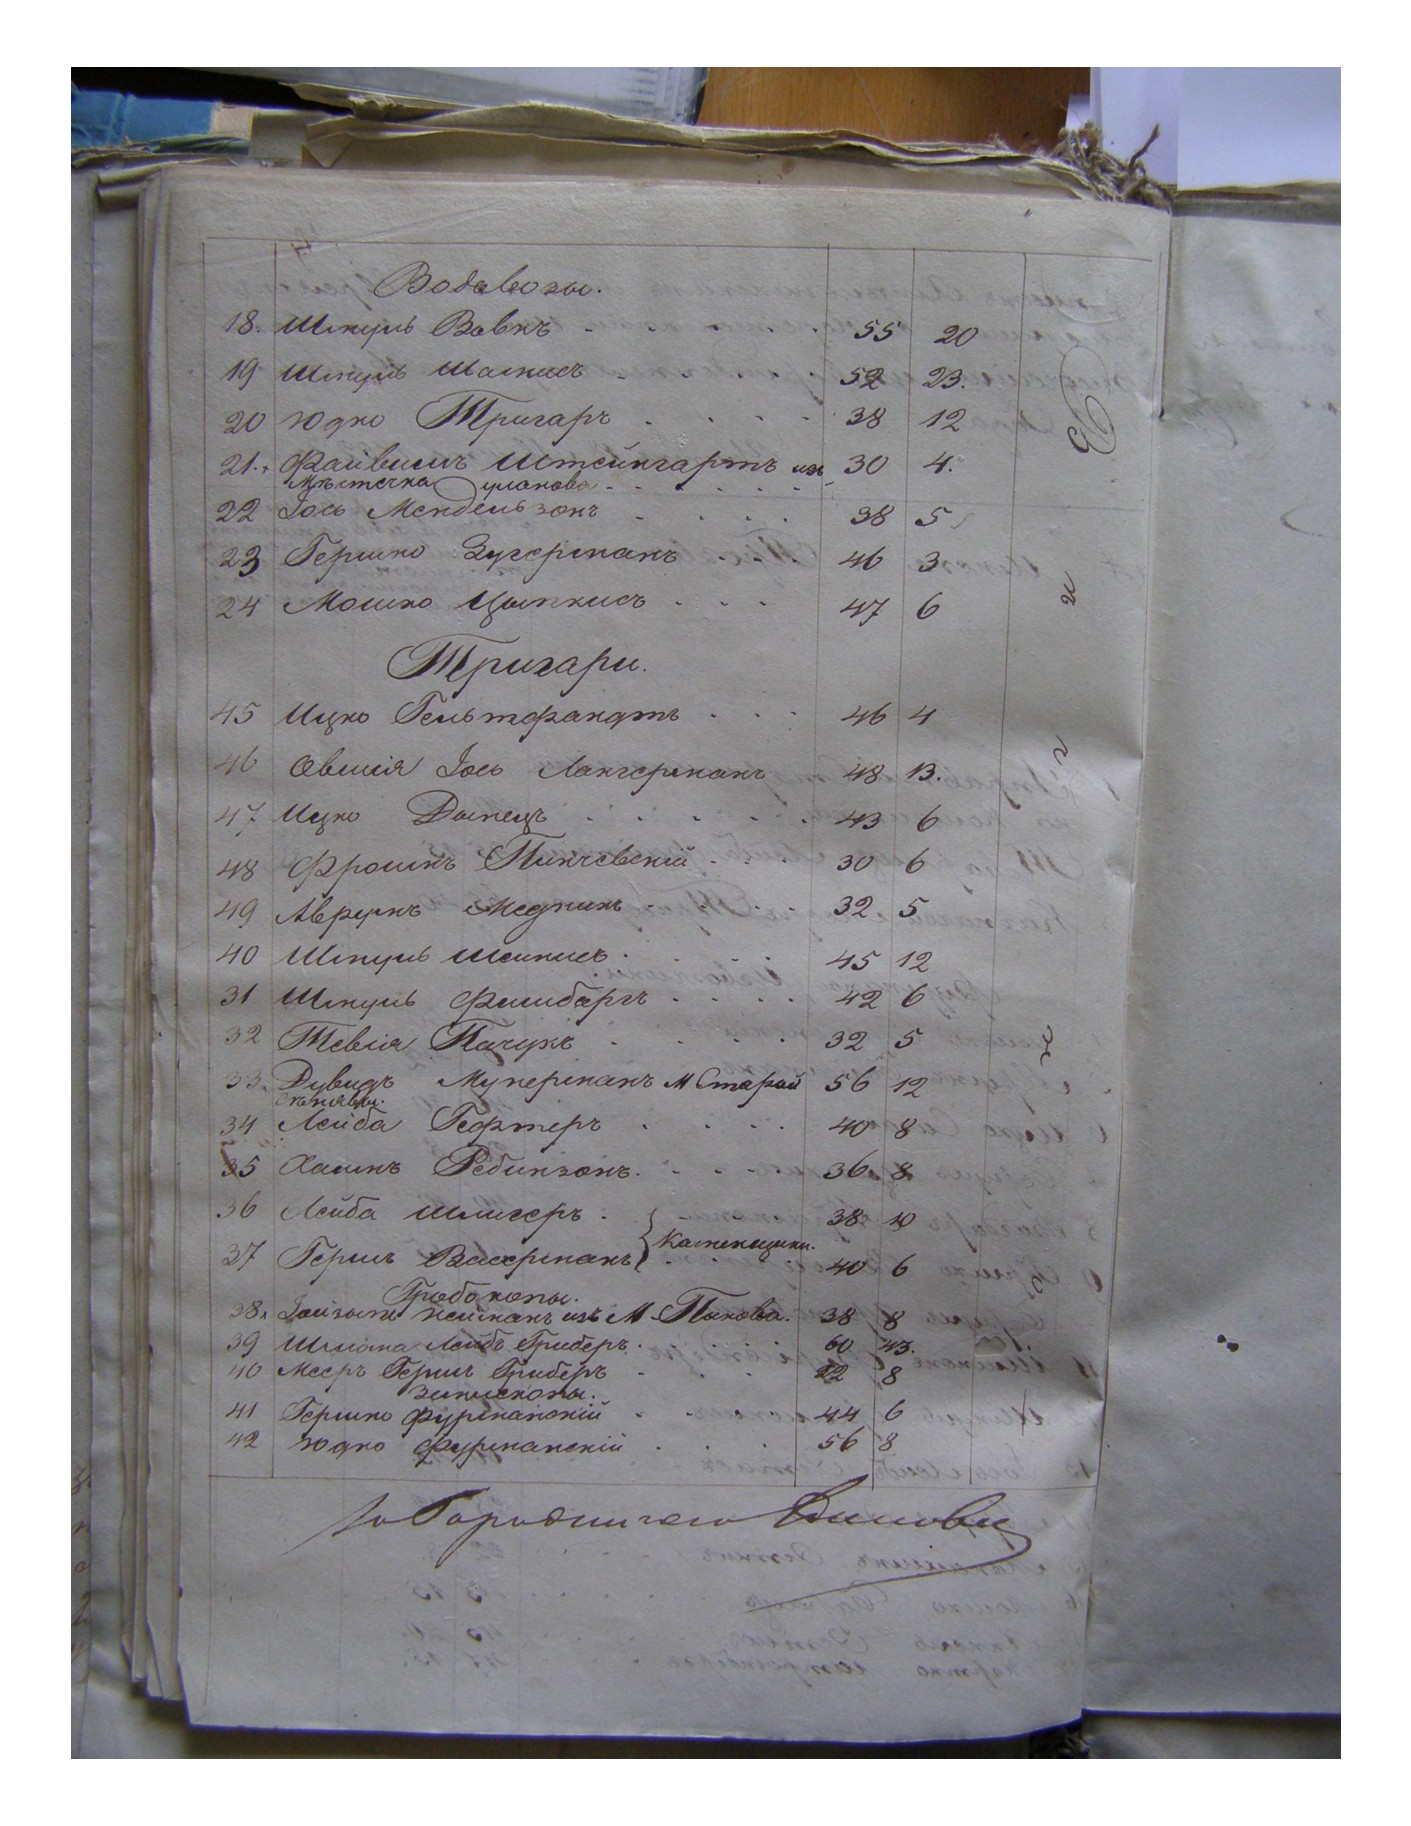 Водовозы.
18. Шмуль Вовкъ 55 20
19 Шмуль 52 23.
20 Юдко Тригаръ 38 12
21. Файвишъ Штейнгартъ изъ 30 4.
Мѣстечка Уланова
22 Іось Мендельзонъ 38 5
23 Гершко Зугерманъ 46 3
24 Мошко Цыпкисъ 47 6
Тригари.
45 Ицко Гельтфандтъ 46 4
46 Овшія Іось Лангерманъ 48 13.
47 Ицко Донецъ 43 6
48 Фроимъ Пинчевскій 30 6
49 Аврумъ Медникъ 32 5
40 Шмуль 45 12
31 Шмуль Фишбаргъ 42 6
32 Тевія Пачукъ 32 5
33. Дувидъ Муперманъ М Старой 56 12
34 Лейба Гефтеръ 40 8
35 Хаимъ Рабинзонъ. 36 8
36 Лейба Шлигеръ 38 10
Каменщики.
37 Гершъ Вассерманъ 40 6
Гробокопы.
38. Нейманъ изъ М Пикова. 38 8
39 Шліома Лейбъ Гриберъ. 60 43.
40 Мееръ Гершъ Гриберъ 22 8
41 Гершко Фурманскій 44 6
42 Юдко Фурманскій 56 8
За Городничаго